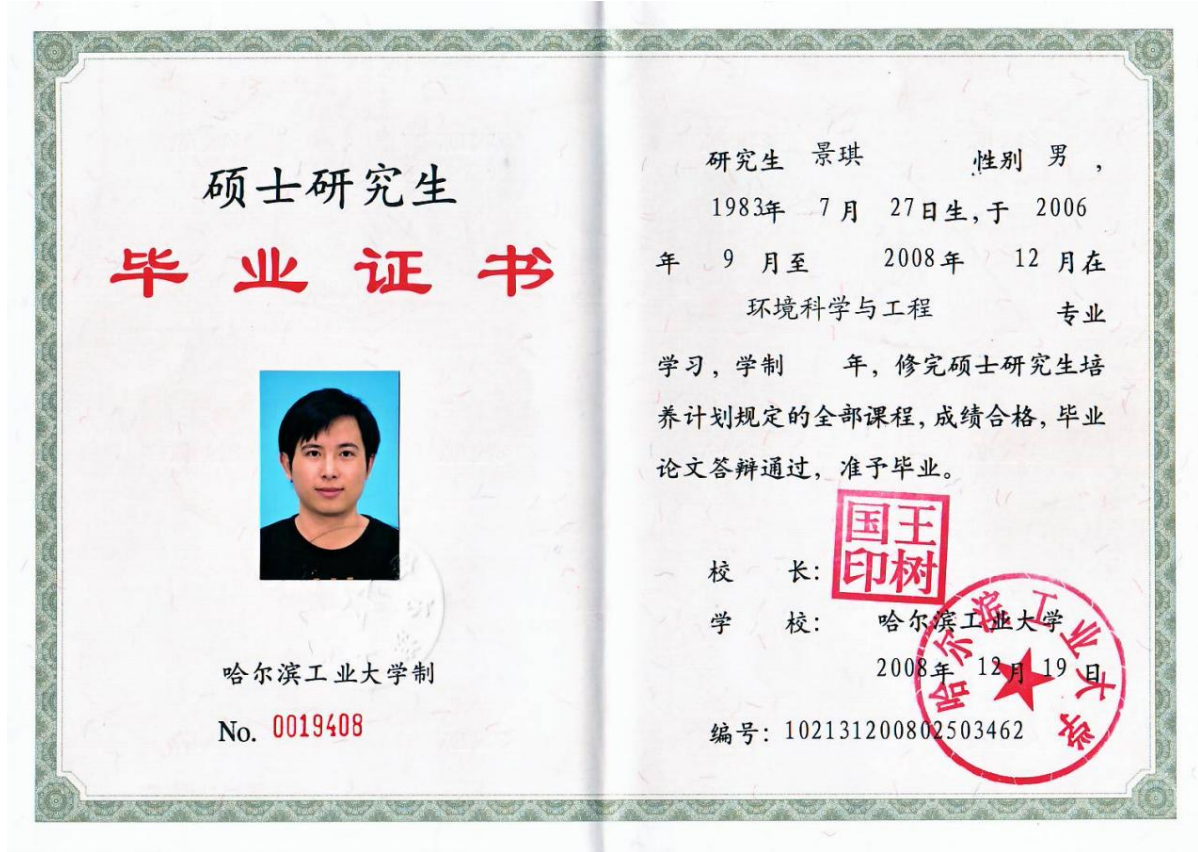 硕士研究生
毕业证书
哈尔滨工业大学制
No. 0019408
研究生 景琪 性别 男，
1983年 7月 27日生，于 2006
年 9 月至 2008年 12 月在
环境科学与工程 专业
学习，学制 年，修完硕士研究生培
养计划规定的全部课程，成绩合格，毕业
论文答辩通过，准予毕业。
校 长：
国王
印树
学 校： 哈尔滨工业大学
2008年 12月 19日
编号：102131200802503462
哈尔滨工业大学